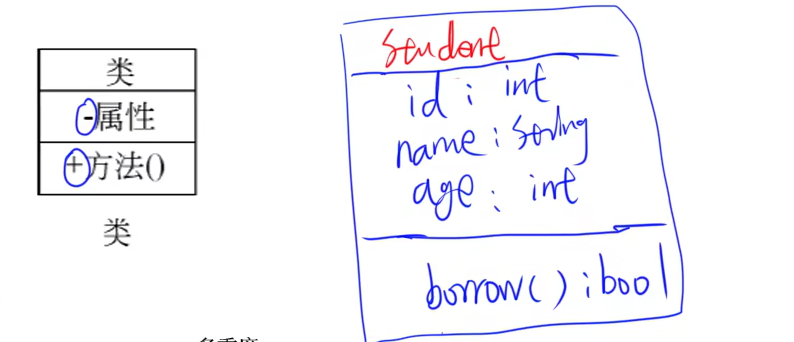 类
-属性
+方法()
类
Student
id : int
name : String
age : int
borrow() : bool